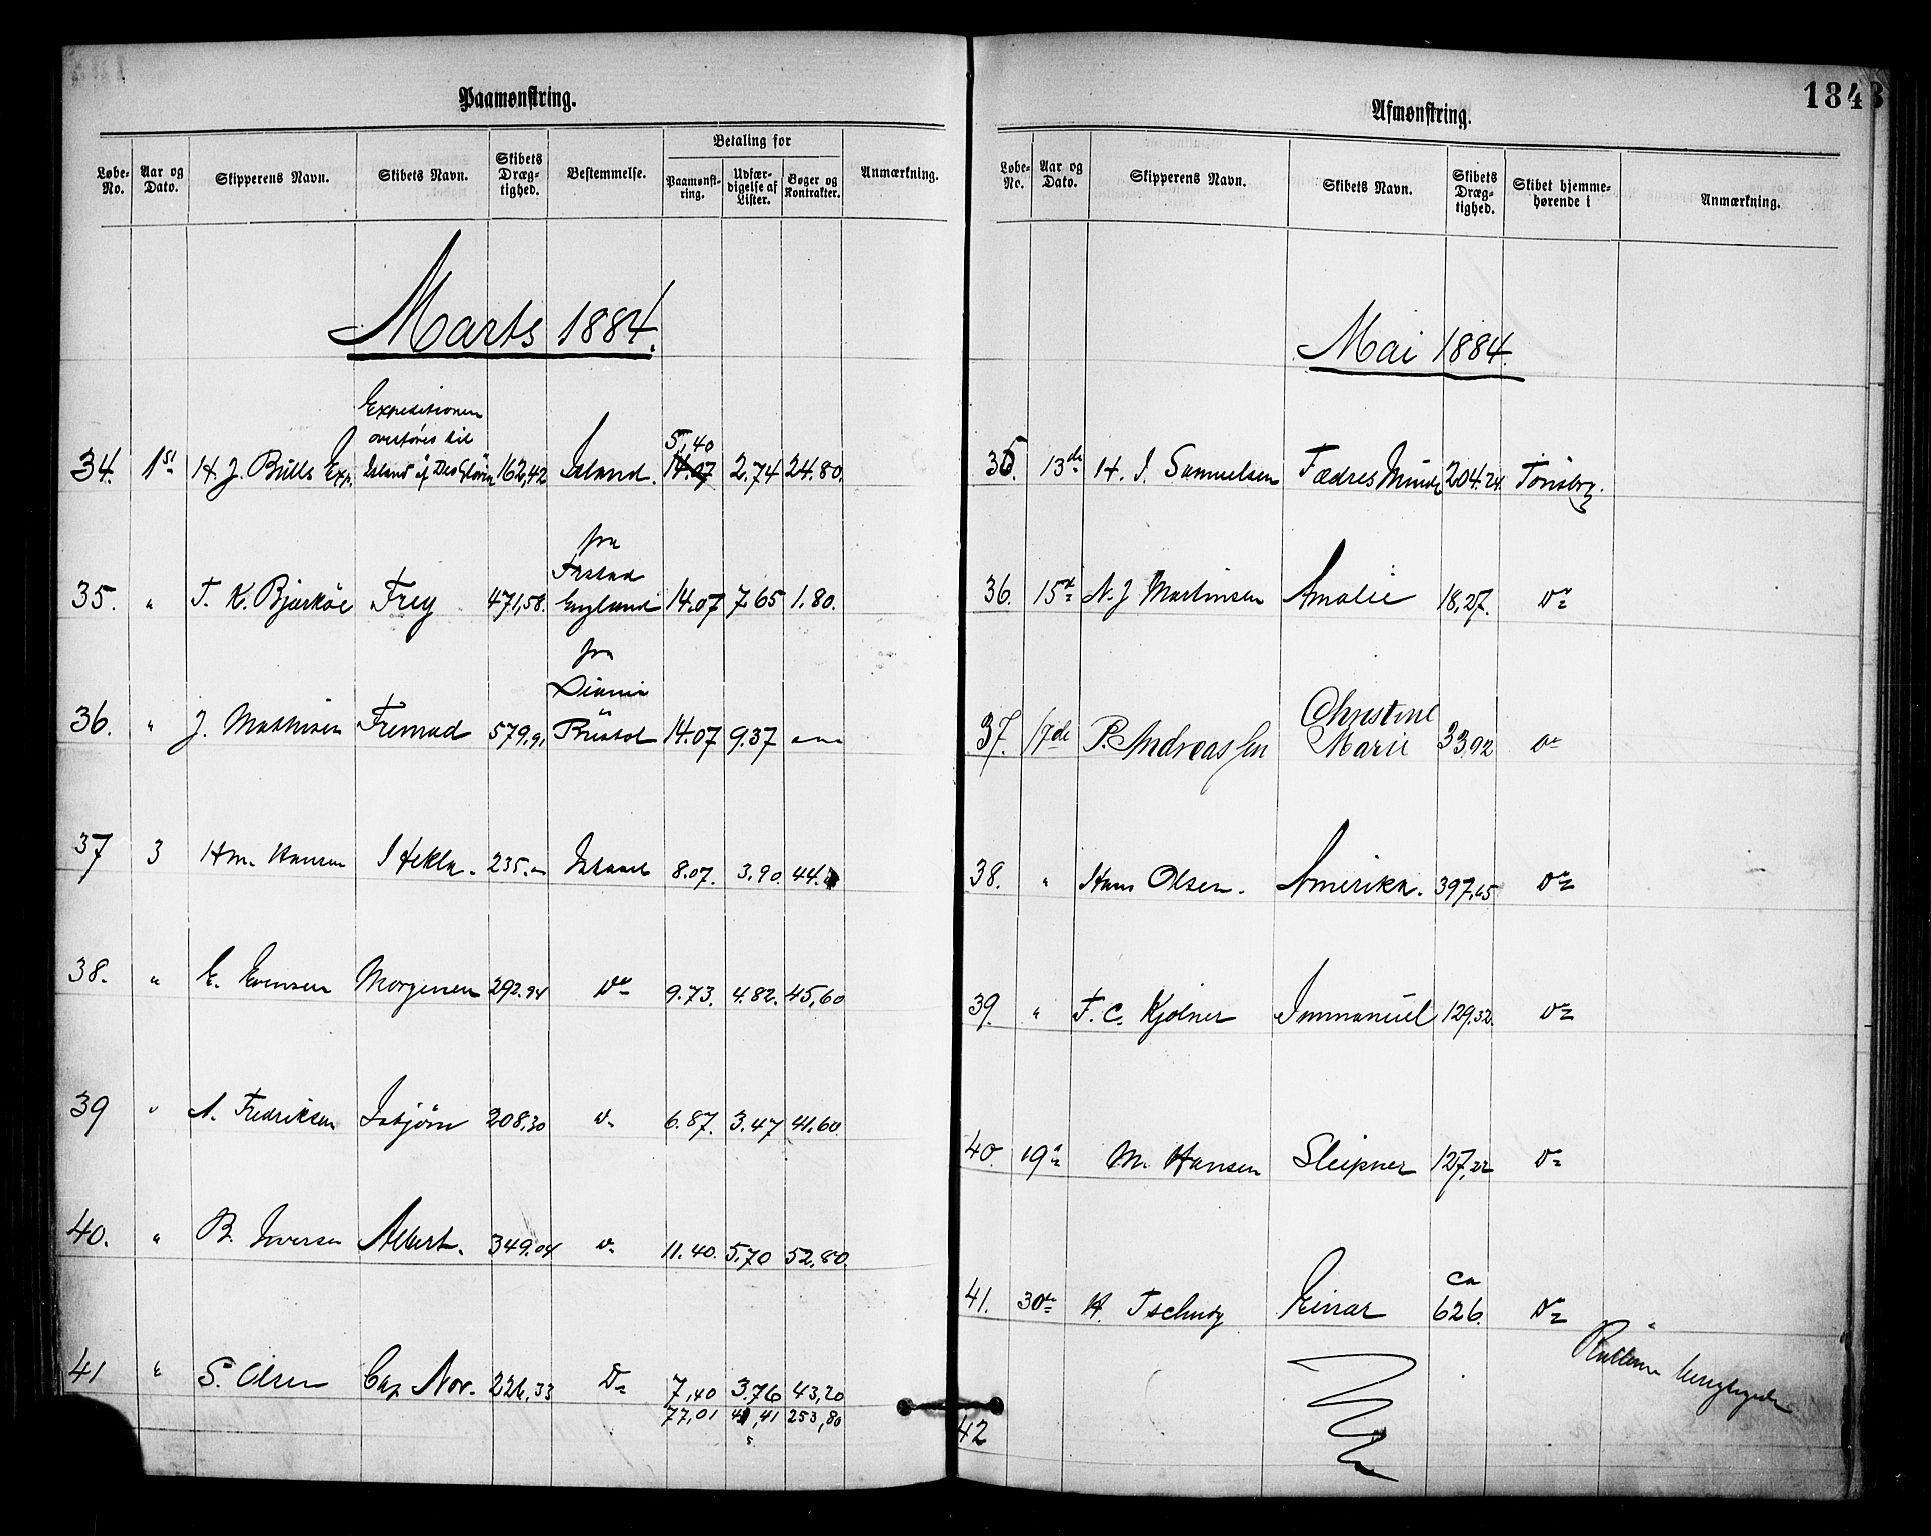 Paamønstring.
Løbe-No. Aar og Dato. Skipperens Navn. Skibets Navn. Skibets Dræg-tighed. Bestemmelse. Betaling for Paamønst-ring. Udfær-digelse af Lister. Bøger og Kontrakter. Anmærkning.
Marts 1884.
Expeditionen
overføres til
34. 1st H. J. Bulls Exp. Island 162,42 Island. 5,40 14.07 2.74 24.80.
fra
35. " T. K. Bjørkøe Frey 471,58. England 14.07 7.65 1.80.
fra
36. " J. Mathisen Fremad 579.91 Bristol 14.07 9.37
37 3 Hm. Hansen Hekla. 235. Island 8.07. 3.90. 44.
38. " E. Evensen Morgenen 292.94 Do 9.73. 4.82. 45,60
39 " A. Fredriksen Isbjørn 208,30 Do 6.87. 3.47 41.60.
40. " B. Iversen Albert. 349.04 Do 11.40. 5,70 52,80.
41 " S. Olsen Cap Nor. 226,33 Do 7,40 3.76 43,20
77,01 41,41 253,80
1843
Afmønstring.
Løbe-No. Aar og Dato. Skipperens Navn. Skibets Navn. Skibets Dræg-tighed. Skibet hjemme-hørende i Anmærkning.
Mai 1884.
35. 13de H. J. Samuelsen Fædres Minde 204.24. Tønsberg.
36. 15de N. J. Martinsen Amalie 18,27. Do
37. 17de P. Andreassen Christine Marie 33,92 Do
38. " Hans Olsen. Amerika. 397,65 Do
39. " F. C. Kjølner Immanuel 129.32. Do
40. 19de M. Hansen Sleipner 127,22 Do
41. 30te H. Tschudy Einar ca 626. Do
Rullen
42